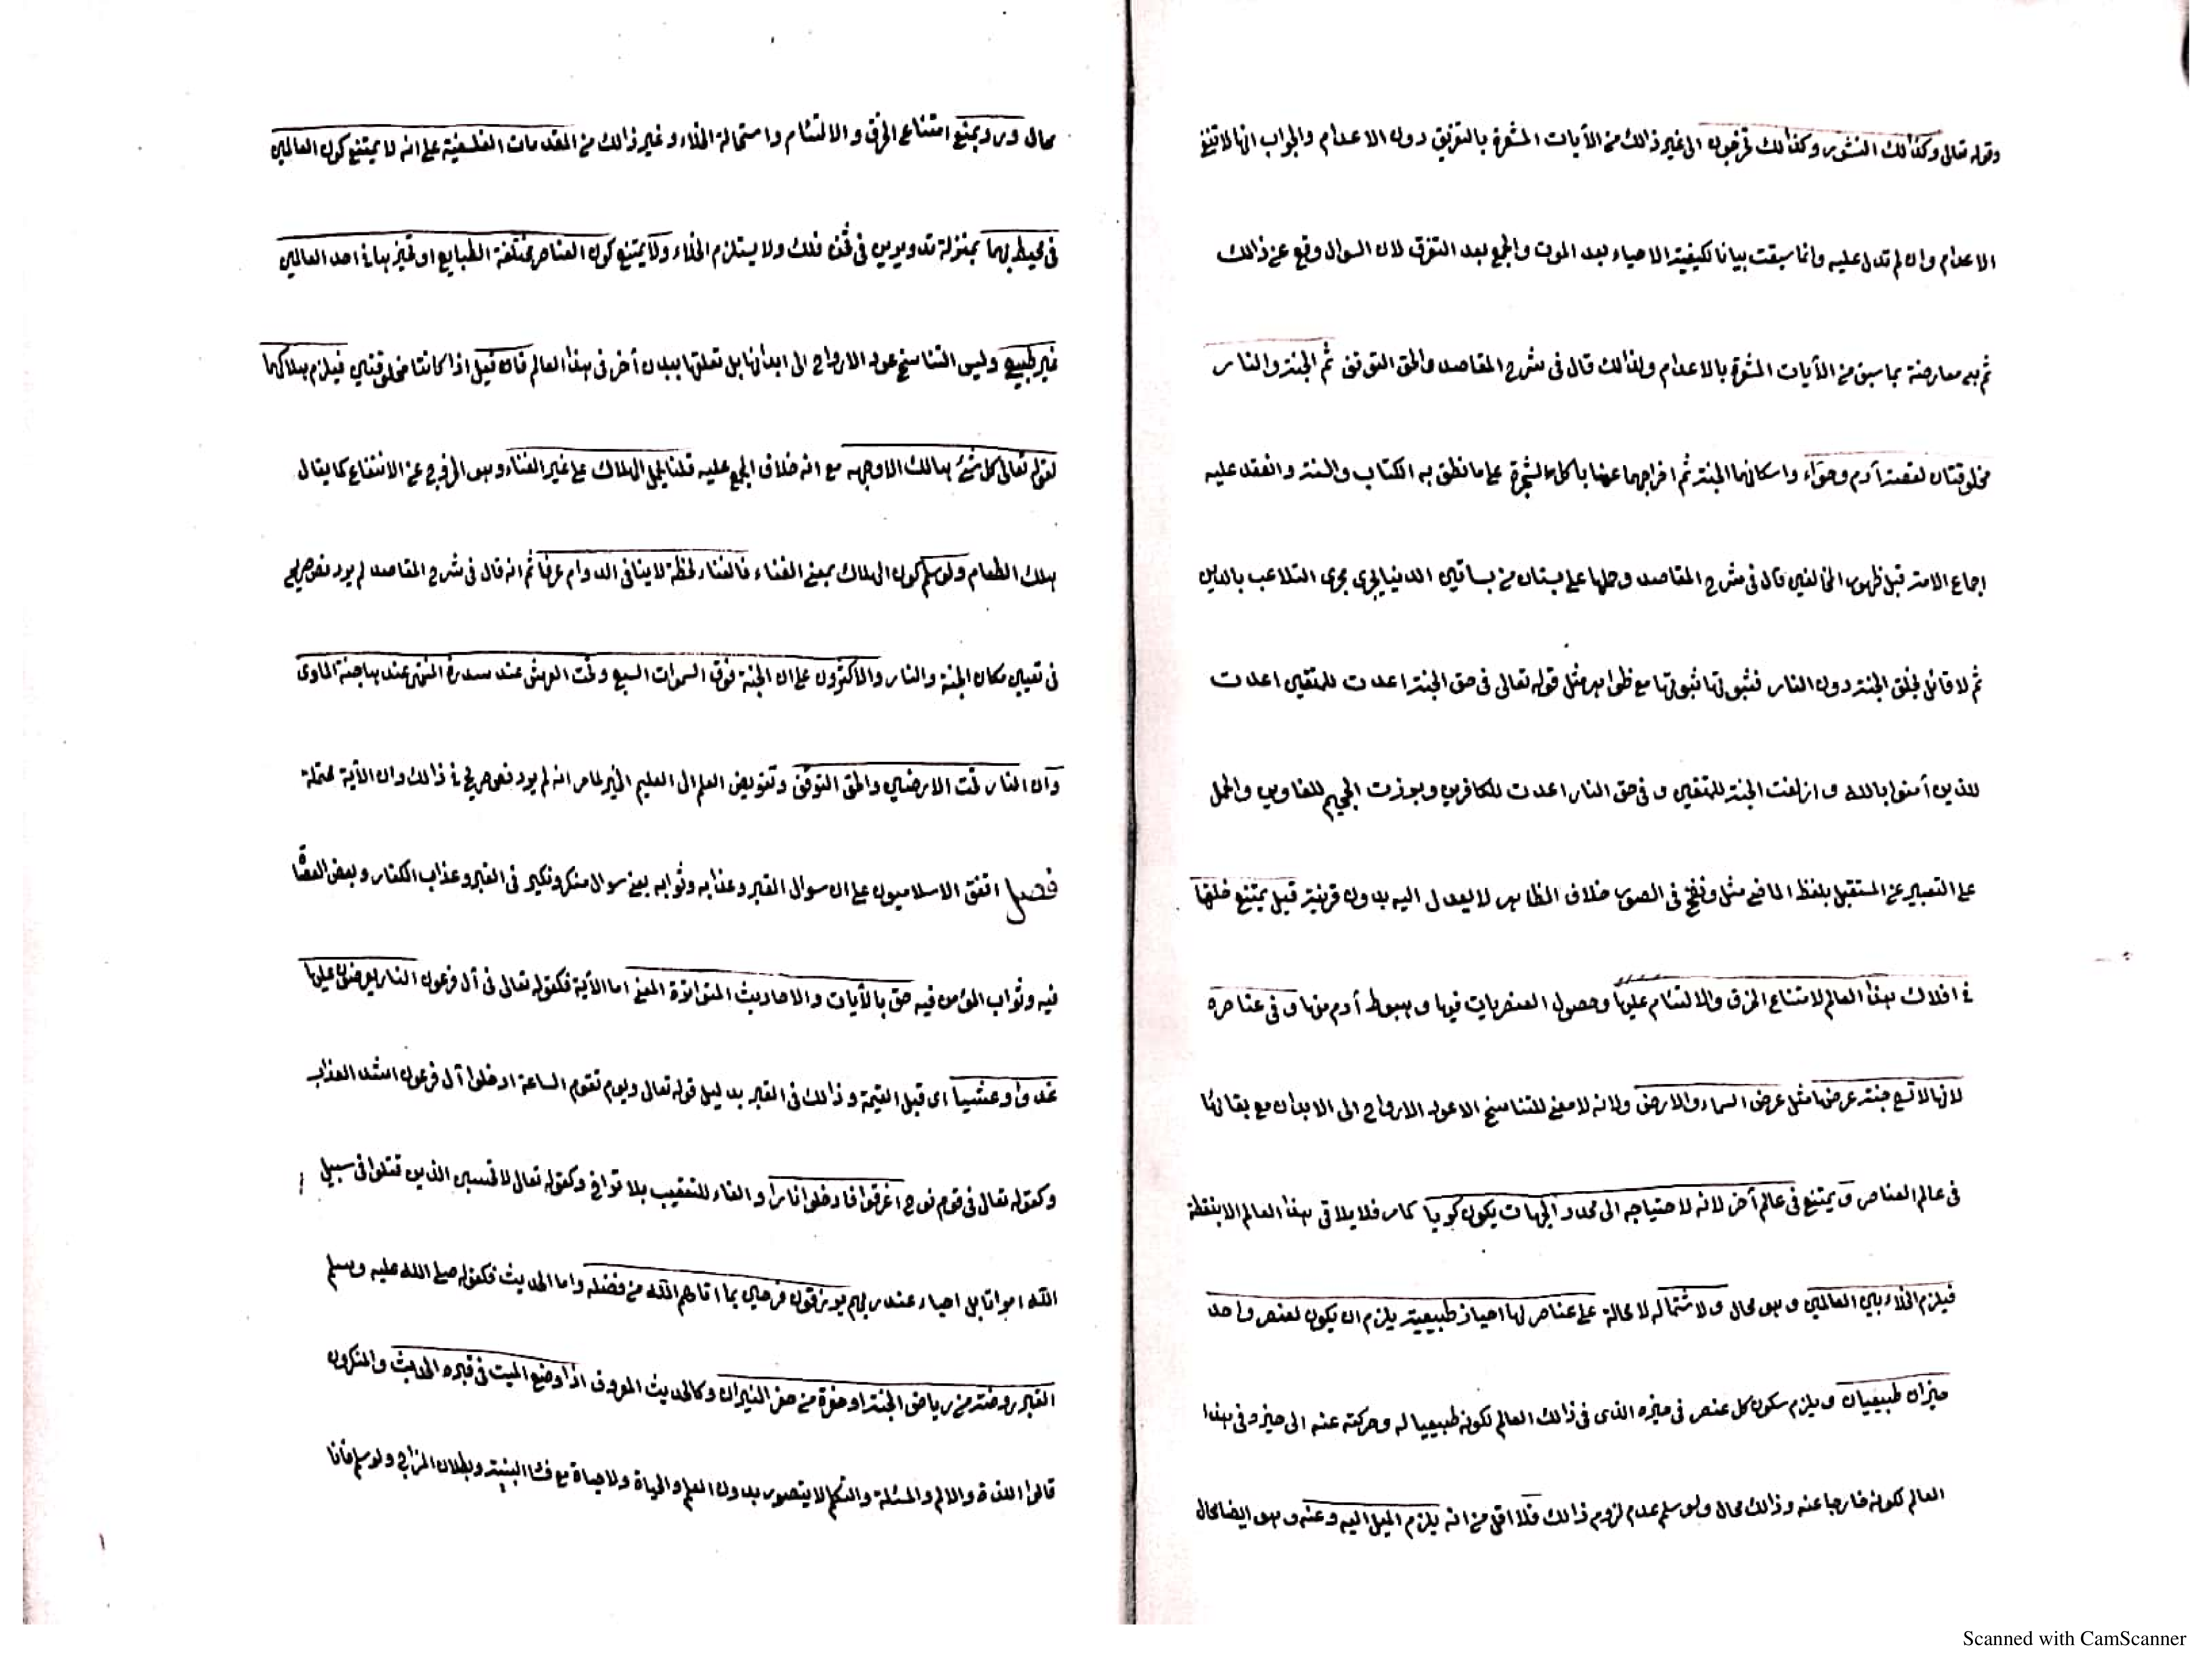 وقوله تعالى وكذالك النشور وكذالك تخرجون الى غير ذالك من الآيات المشعرة بالتفريق دون الاعدام والجواب انها لا تنفي
الاعدام وان لم تدل عليه وانما سيقت بيانا لكيفية الاحياء بعد الموت والجمع بعد التفرق لان السوال وقع عن ذالك
ثم هي معارضة بما سبق من الآيات المشعرة بالاعدام ولذالك قال في شرح المقاصد والحق التوقف ثم الجنة والنار
مخلوقتان لقصة آدم وحواء واسكانهما الجنة ثم اخراجهما عنها باكل الشجرة على ما نطق به الكتاب والسنة وانعقد عليه
اجماع الامة قبل ظهور المخالفين قال في شرح المقاصد وحملها على بستان من بساتين الدنيا يجرى مجرى التلاعب بالدين
ثم لا قائل بخلق الجنة دون النار فثبوتها ثبوتها مع ظواهر مثل قوله تعالى في حق الجنة اعدت للمتقين اعدت
للذين آمنوا بالله وازلفت الجنة للمتقين وفي حق النار اعدت للكافرين وبرزت الجحيم للغاوين والحمل
على التعبير عن المستقبل بلفظ الماضي مثل ونفخ في الصور خلاف الظاهر لا يعدل اليه بدون قرينة قيل يمتنع خلقها
في افلاك هذا العالم لامتناع الخرق والالتئام عليها وحصول العنصريات فيها وهبوط آدم منها وفي عناصره
لانها لا تسع جنة عرضها مثل عرض السماء والارض ولانه لا معنى للتناسخ الا عود الارواح الى الابدان مع بقائها
في عالم العناصر ويمتنع في عالم آخر لانه لاحتياجه الى محدد الجهات يكون كريا كما مر فلا يلاقي هذا العالم الا بنقطة
فيلزم الخلاء بين العالمين وهو محال ولاشتماله لا محالة على عناصر لها احياز طبيعية يلزم ان يكون لعنصر واحد
حيزان طبيعيان ويلزم سكون كل عنصر في حيزه الذى في ذالك العالم لكونه طبيعيا له وحركته عنه الى حيزه في هذا
العالم لكونه خارجا عنه وذالك محال ولو سلم عدم لزوم ذالك فلا اقل من انه يلزم الميل اليه وعنه وهو ايضا محال
محال ورد بمنع امتناع الخرق والالتئام واستحالة الخلاء وغير ذالك من المقدمات الفلسفية على انه لا يمتنع كون العالمين
في محيط بهما بمنزلة تدويرين في ثخن فلك ولا يستلزم الخلاء ولا يمتنع كون العناصر مختلفة الطبايع او تحيزها في احد العالمين
غير طبيعي وليس التناسخ عود الارواح الى ابدانها بل تعلقها ببدن آخر في هذا العالم فان قيل اذا كانتا مخلوقتين فيلزم هلاكهما
لقوله تعالى كل شئ هالك الا وجهه مع انه خلاف المجمع عليه قلنا يحمل الهلاك على غير الفناء وهو الخروج عن الانتفاع كما يقال
هلك الطعام ولو سلم كون الهلاك بمعنى الفناء فالفناء لحظة لا ينافى الدوام عرفا ثم انه قال في شرح المقاصد لم يرد نص صريح
في تعيين مكان الجنة والنار والاكثرون على ان الجنة فوق السموات السبع وتحت العرش عند سدرة المنتهى عندها جنة الماوى
وان النار تحت الارضين والحق التوقف وتفويض العلم الى العليم الخبير لما مر انه لم يرد نص صريح في ذالك وان الآية محتملة
فصل اتفق الاسلاميون على ان سوال القبر وعذابه وثوابه يعني سوال منكر ونكير في القبر وعذاب الكفار وبعض العصاة
فيه وثواب المؤمن فيه حق بالآيات والاحاديث المتواترة المعنى اما الآية فكقوله تعالى في آل فرعون النار يعرضون عليها
غدوا وعشيا اى قبل القيمة وذالك في القبر بدليل قوله تعالى ويوم تقوم الساعة ادخلوا آل فرعون اشد العذاب
وكقوله تعالى في قوم نوح اغرقوا فادخلوا نارا والفاء للتعقيب بلا تراخ وكقوله تعالى لا تحسبن الذين قتلوا في سبيل
الله امواتا بل احياء عند ربهم يرزقون فرحين بما اتاهم الله من فضله واما الحديث فكقوله صلى الله عليه وسلم
القبر روضة من رياض الجنة او حفرة من حفر النيران وكالحديث المعروف اذا وضع الميت في قبره الحديث والمنكرون
قالوا اللذة والالم والمسئلة والتكلم لا يتصور بدون العلم والحياة ولا حياة مع فساد البنية وبطلان المزاج ولو سلم فانا
Scanned with CamScanner